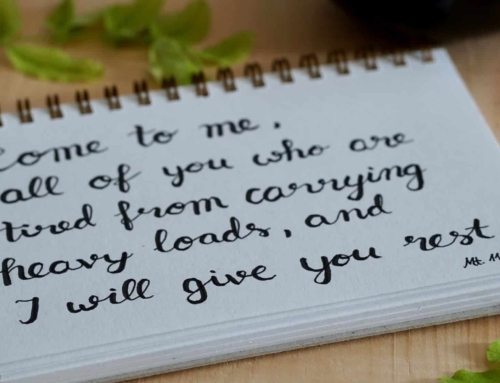 Come to me,
all of you who are
tired from carrying
heavy loads, and
I will give you rest
Mt. 11